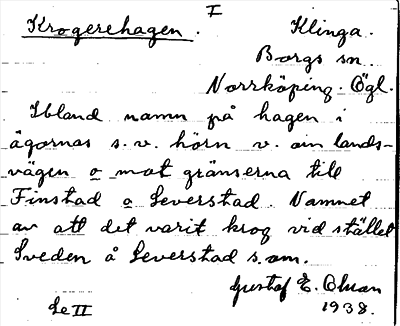 I
Krogerehagen. Klinga.
Borgs sn.
Norrköping. Ögl.
Ibland namn på hagen i
ägornas s.v. hörn v. om lands-
vägen o mot gränserna till
Finstad o Leverstad. Namnet
av att det varit krog vid stället
Sveden å Leverstad s. om.
Gustaf E.
Se II 1938.